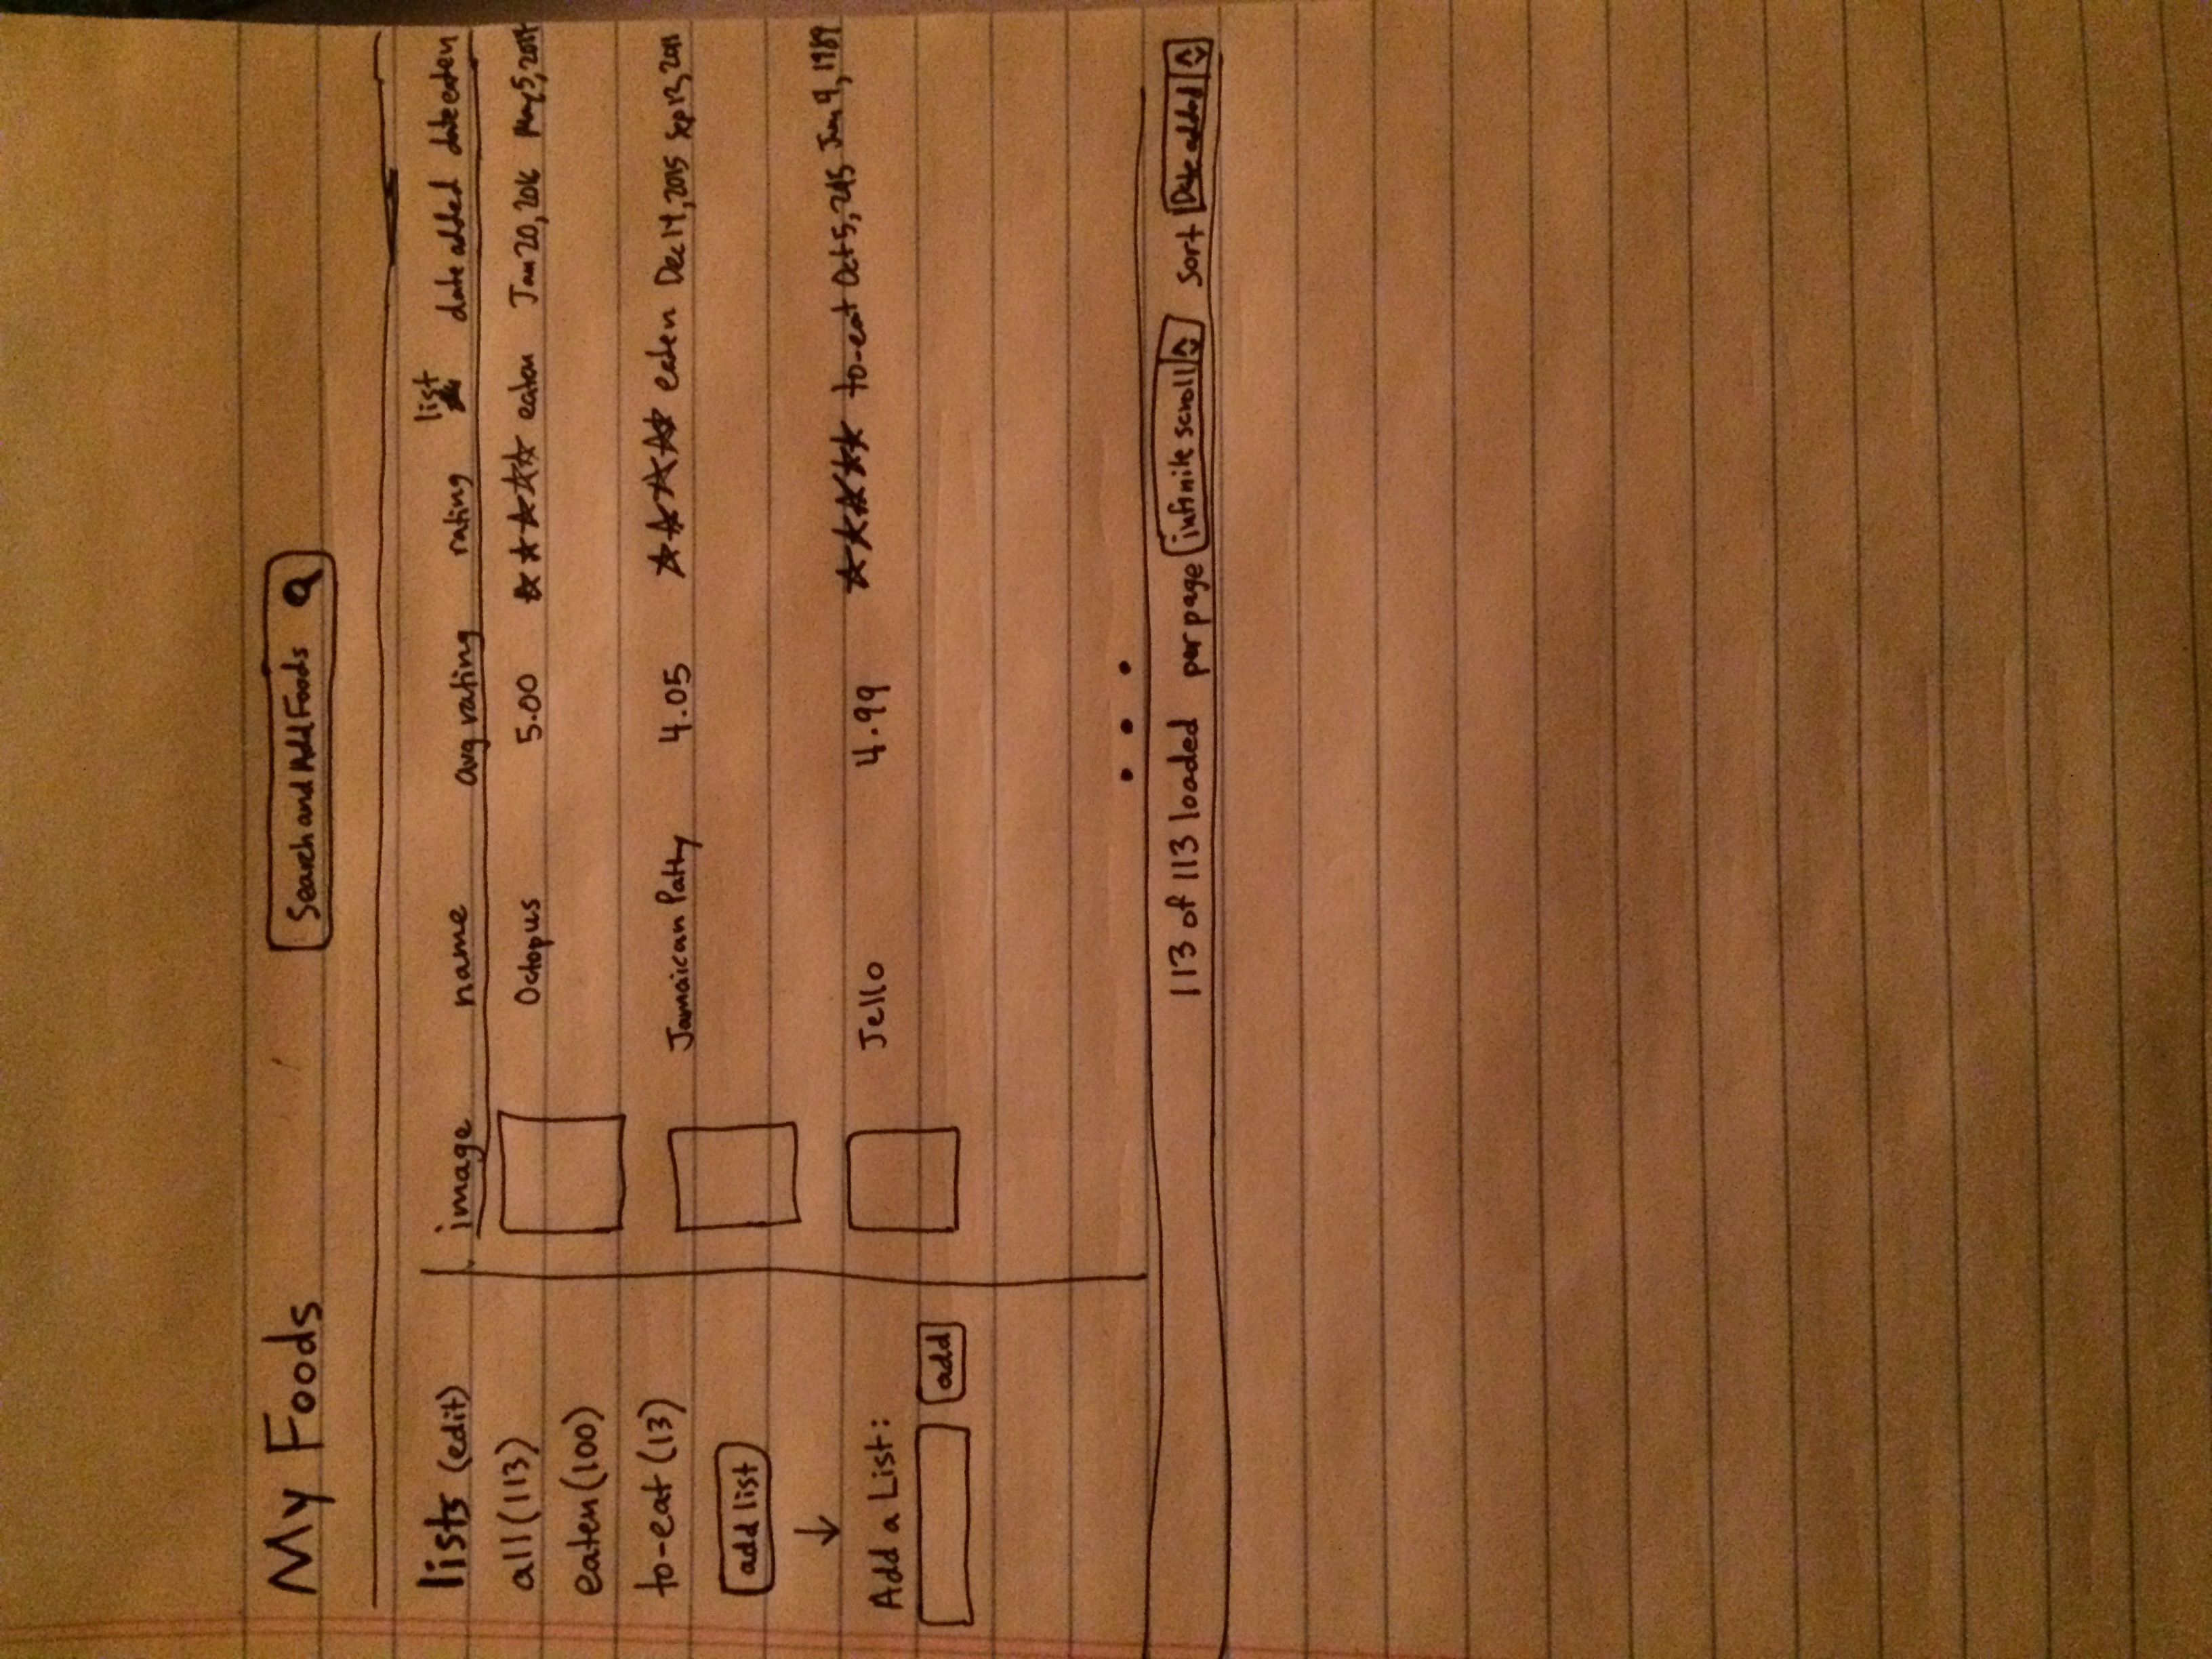 My Foods
Search and Add Foods
lists (edit)
all (113)
eaten (100)
to-eat (13)
add list
Add a List:
add
image name avg rating rating list date added date eaten
Octopus 5.00 eaten Jan 20, 2016 May 5, 2014
Jamaican Patty 4.05 eaten Dec 14, 2015 Sep 13, 2011
Jello 4.99 to-eat Oct 5, Jun 9, 1989
113 of 113 loaded per page infinite scroll Sort Date added